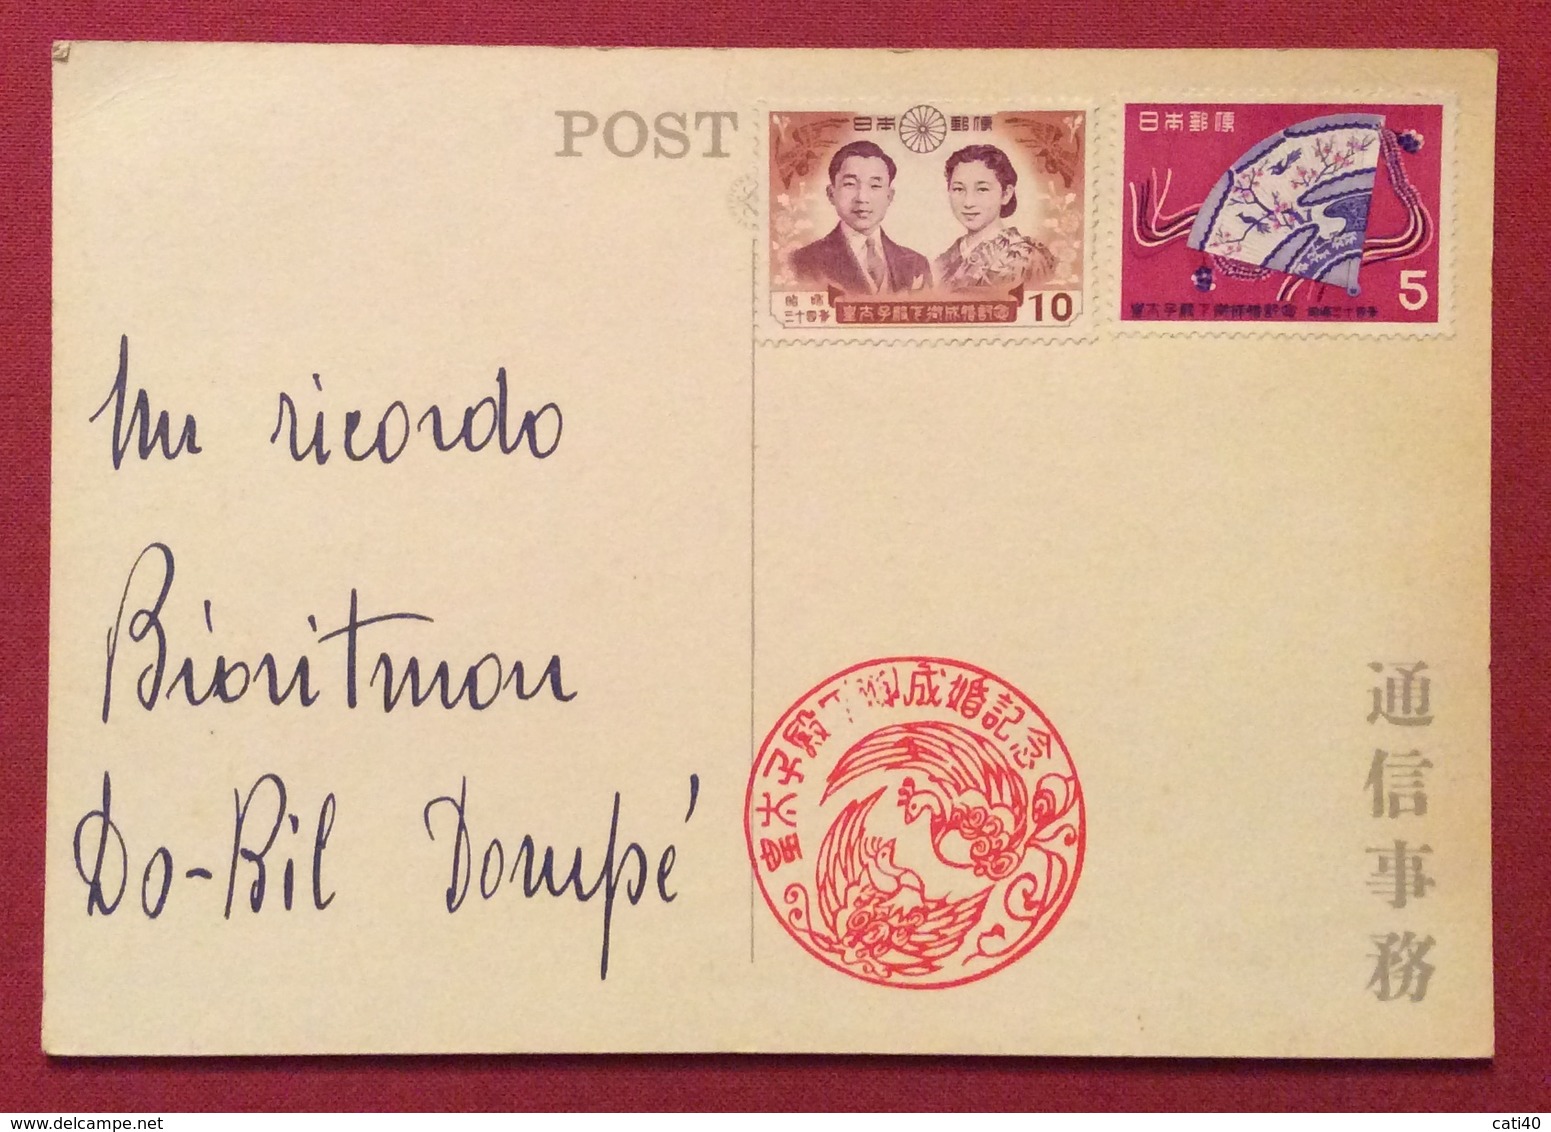 POST
日本郵便
昭和三十四年
皇太子殿下御成婚記念
10
日本郵便
5
皇太子殿下御成婚記念 昭和三十四年
Un ricordo
Bioritmon
Do-Bil Dompé
皇太子殿下御成婚記念
通信事務
cati40